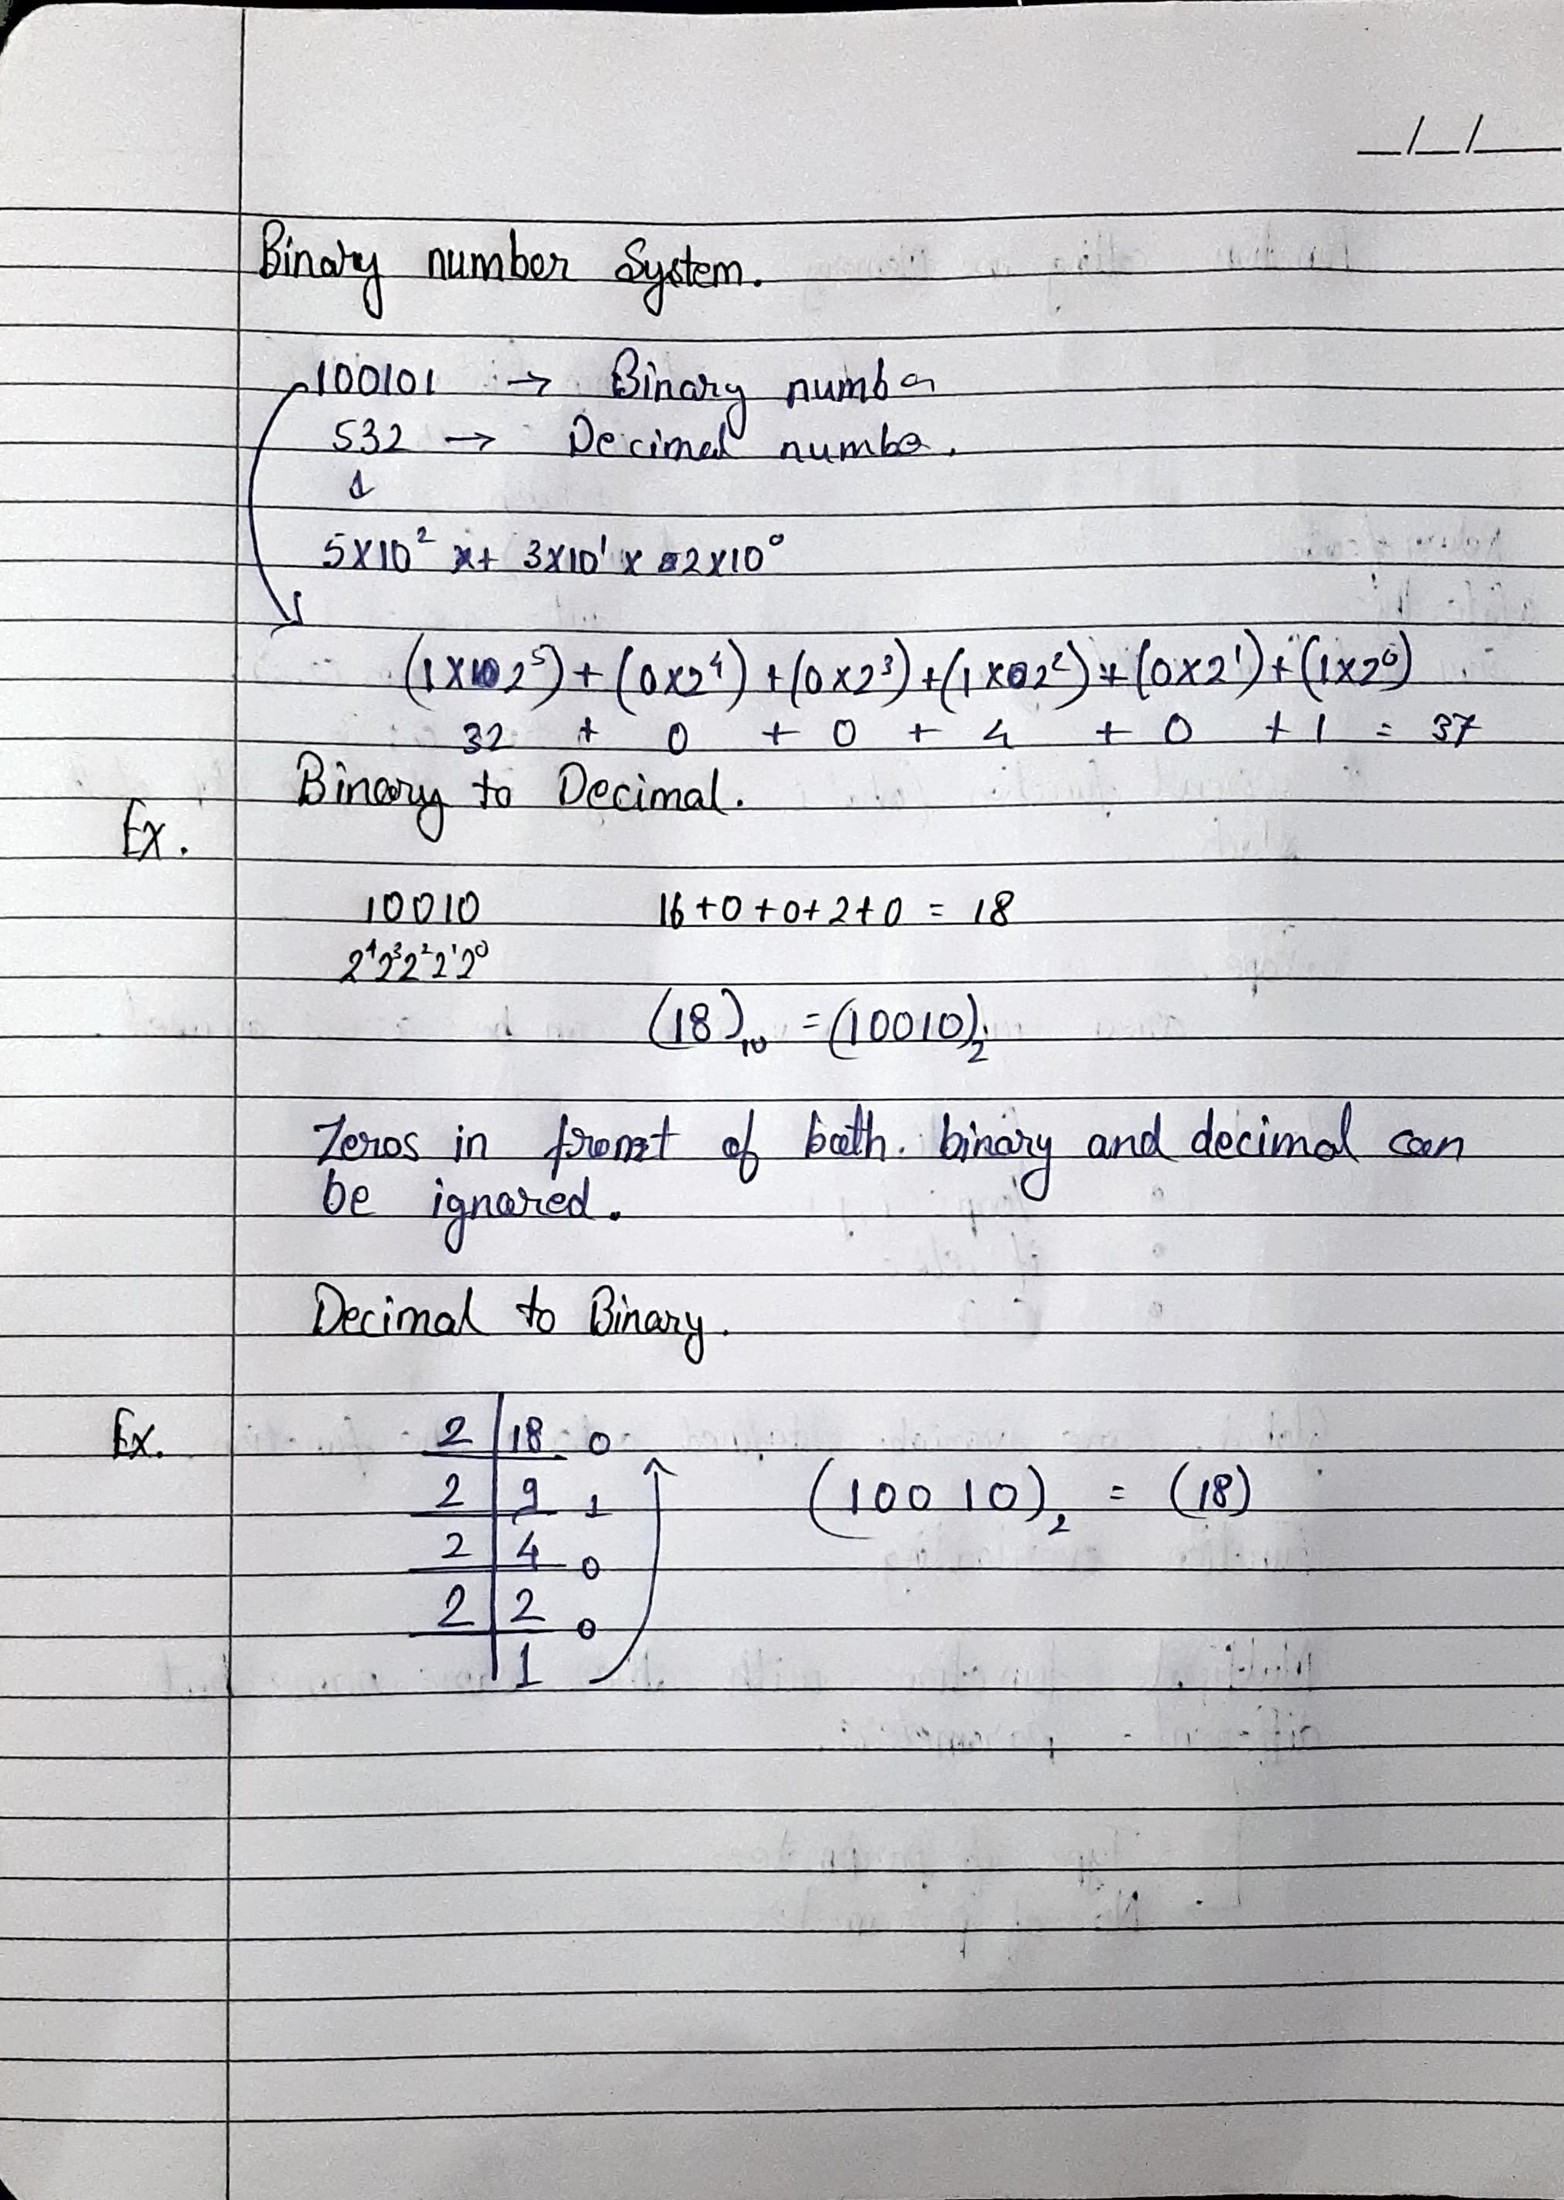 _/_/_
Binary number System.
100101 → Binary number
532 → Decimal number.
↓
5×10² x+ 3×10¹ x 2×10⁰
(1×2⁵) + (0×2⁴) + (0×2³) + (1×2²) + (0×2¹) + (1×2⁰)
32 + 0 + 0 + 4 + 0 + 1 = 37
Binary to Decimal.
Ex.
10010 16+0+0+2+0 = 18
2⁴2³2²2¹2⁰
(18)₁₀ = (10010)₂
Zeros in front of both. binary and decimal can
be ignored.
Decimal to Binary.
Ex. 2 | 18 0
2 | 9 1 (10010)₂ = (18)
2 | 4 0
2 | 2 0
1